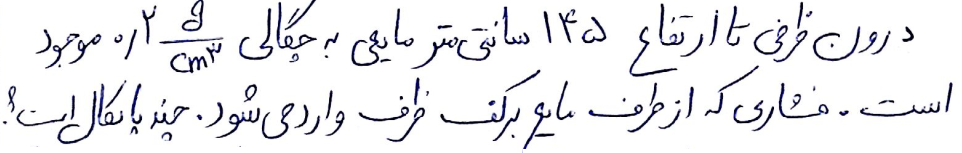 درون ظرفی تا ارتفاع ۱۴۵ سانتی‌متر مایعی به چگالی ۰٫۲ g/cm³ موجود
است. فشاری که از طرف مایع بر کف ظرف وارد می‌شود. چند پاسکال است؟